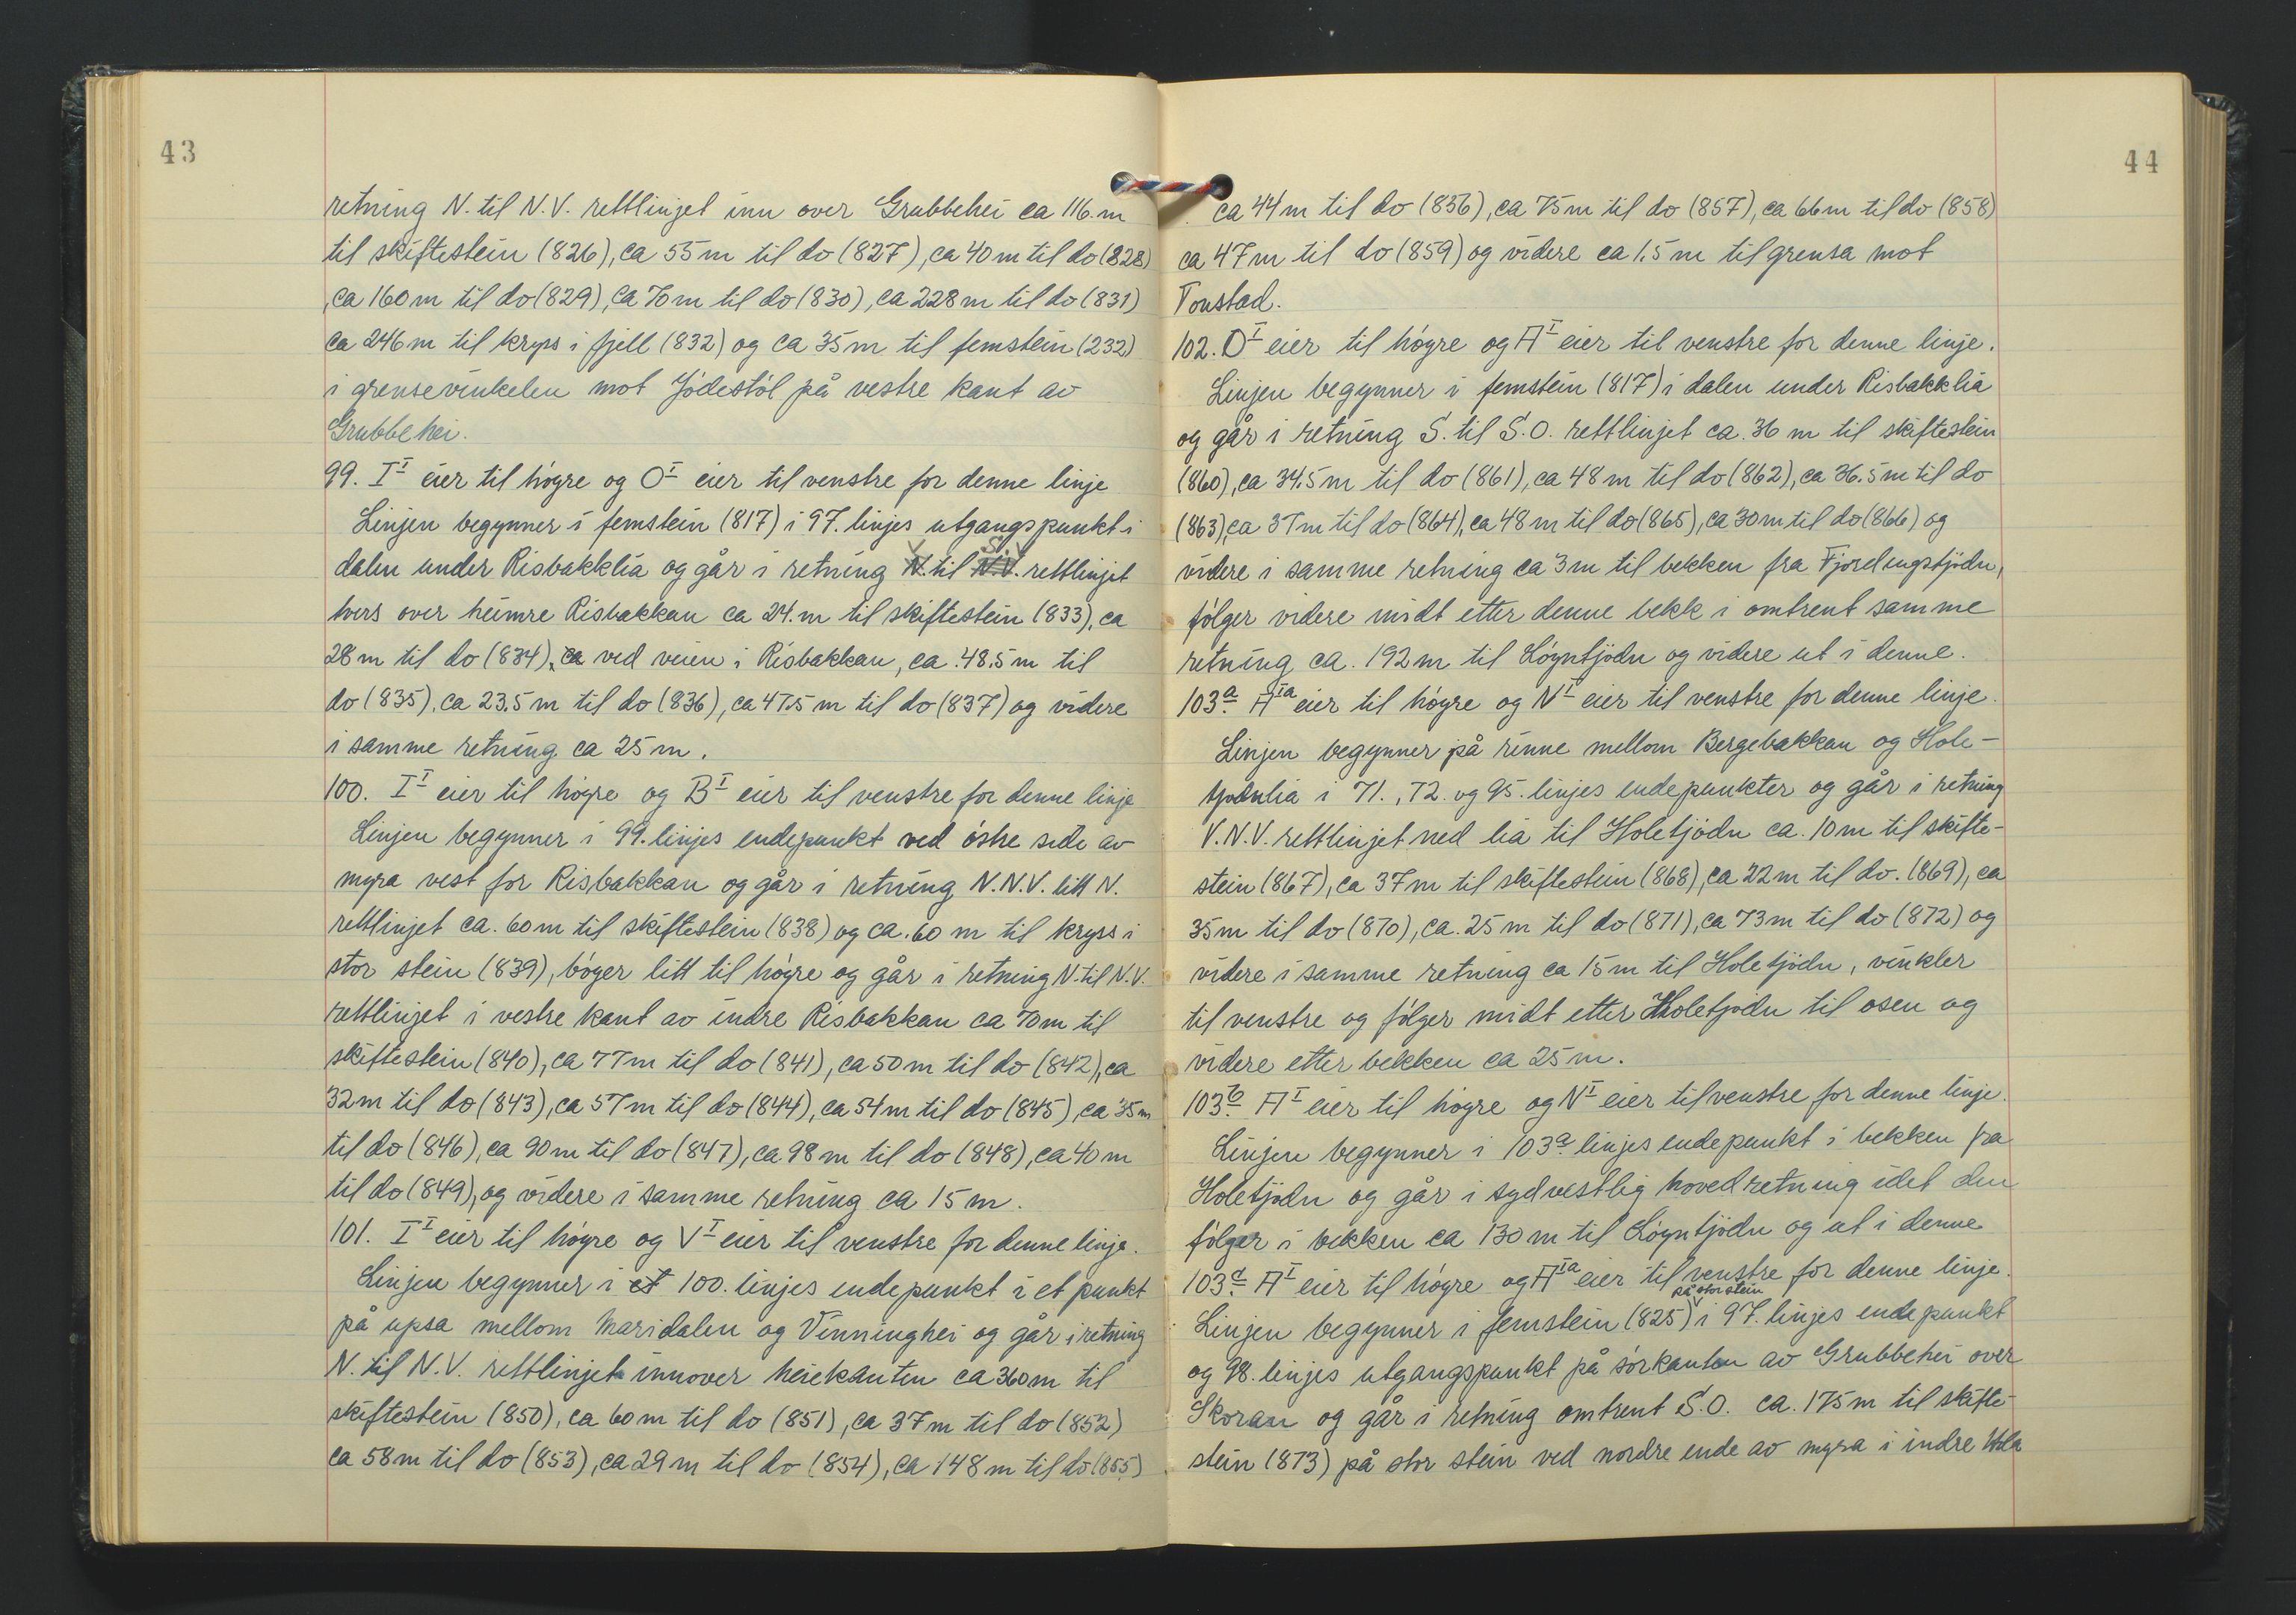 43
retning N. til N.V. rettlinjet inn over Grubbehei ca 116.m
til skiftestein (826), ca 55m til do (827), ca 40m til do (828)
, ca 160m til do (829), ca 70m til do (830), ca 228m til do (831)
ca 246m til kryss i fjell (832) og ca 35m til femstein (232)
i grensevinkelen mot Jödestöl på vestre kant av
Grubbehei.
99. I I eier til högre og O I eier til venstre for denne linje
Linjen begynner i femstein (817) i 97. linjes utgangspunkt i
dalen under Risbakklia og går i retning V. til S.V. rettlinjet
tvers over heimre Risbakkan ca 24.m til skiftestein (833), ca
28m til do (834), ca ved veien i Risbakkan, ca. 48.5m til
do (835), ca 23.5m til do (836), ca 47.5m til do (837) og videre
i samme retning ca 25m.
100. I I eier til högre og B I eier til venstre for denne linje
Linjen begynner i 99. linjes endepunkt ved östre side av
myra vest for Risbakkan og går i retning N.N.V. litt N.
rettlinjet ca. 60m til skiftestein (838) og ca. 60 m til kryss i
stor stein (839), böger litt til högre og går i retning N. til N.V.
rettlinjet i vestre kant av indre Risbakkan ca 70m til
skiftestein (840), ca 77m til do (841), ca 50m til do (842), ca
32m til do (843), ca 57m til do (844), ca 54m til do (845), ca 35m
til do (846), ca 90m til do (847), ca 98m til do (848), ca 40m
til do (849), og videre i samme retning ca 15m.
101. I I eier til högre og V I eier til venstre for denne linje.
Linjen begynner i et 100. linjes endepunkt i et punkt
på upsa mellom Maridalen og Vinninghei og går i retning
N. til N.V. rettlinjet innover heiekanten ca 360m til
skiftestein (850), ca 60m til do (851), ca 37m til do (852)
ca 58m til do (853), ca 29m til do (854), ca 148m til do (855)
44
ca 44m til do (836), ca 75m til do (857), ca 66m til do (858)
ca 47m til do (859) og videre ca 1.5m til grensa mot
Tonstad.
102. O I eier til högre og A I eier til venstre for denne linje.
Linjen begynner i femstein (817) i dalen under Risbakklia
og går i retning S. til S.O. rettlinjet ca. 36 m til skiftestein
(860), ca 34.5m til do (861), ca 48m til do (862), ca 36.5m til do
(863), ca 37m til do (864), ca 48m til do (865), ca 30m til do (866) og
videre i samme retning ca 3m til bekken fra Fjordungstjödn,
fölger videre midt etter denne bekk i omtrent samme
retning ca. 192m til Löyntjödn og videre ut i denne.
103a. A Ia eier til högre og N I eier til venstre for denne linje.
Linjen begynner på rinne mellom Bergebakkan og Hole-
tjödnlia i 71., 72. og 95. linjes endepunkter og går i retning
V.N.V. rettlinjet ned lia til Holetjödn ca. 10m til skifte-
stein (867), ca 37m til skiftestein (868), ca 22m til do. (869), ca
35m til do (870), ca. 25m til do (871), ca 73m til do (872) og
videre i samme retning ca 15m til Holetjödn, vinkler
til venstre og fölger midt etter Holetjödn til osen og
videre etter bekken ca 25m.
103b. A I eier til högre og N I eier til venstre for denne linje.
Linjen begynner i 103a linjes endepunkt i bekken fra
Holetjödn og går i sydvestlig hovedretning idet den
fölger i bekken ca 130m til Löyntjödn og ut i denne
103c. A I eier til högre og A Ia eier til venstre for denne linje.
på stor stein
Linjen begynner i femstein (825) i 97. linjes endepunkt
og 98. linjes utgangspunkt på sörkanten av Grubbehei over
Skoran og går i retning omtrent S.O. ca. 175m til skifte-
stein (873) på stor stein ved nordre ende av myra i indre